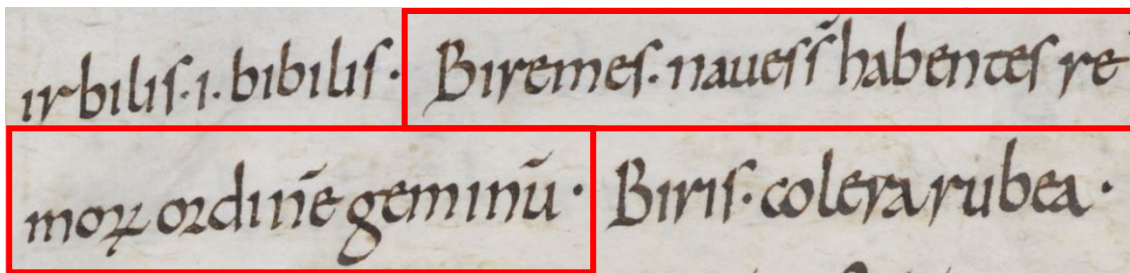 irbilis·i·bibilis· Biremes·naues s̄ habentes re
moꝝ ordinē geminū· Biris·colera rubea·